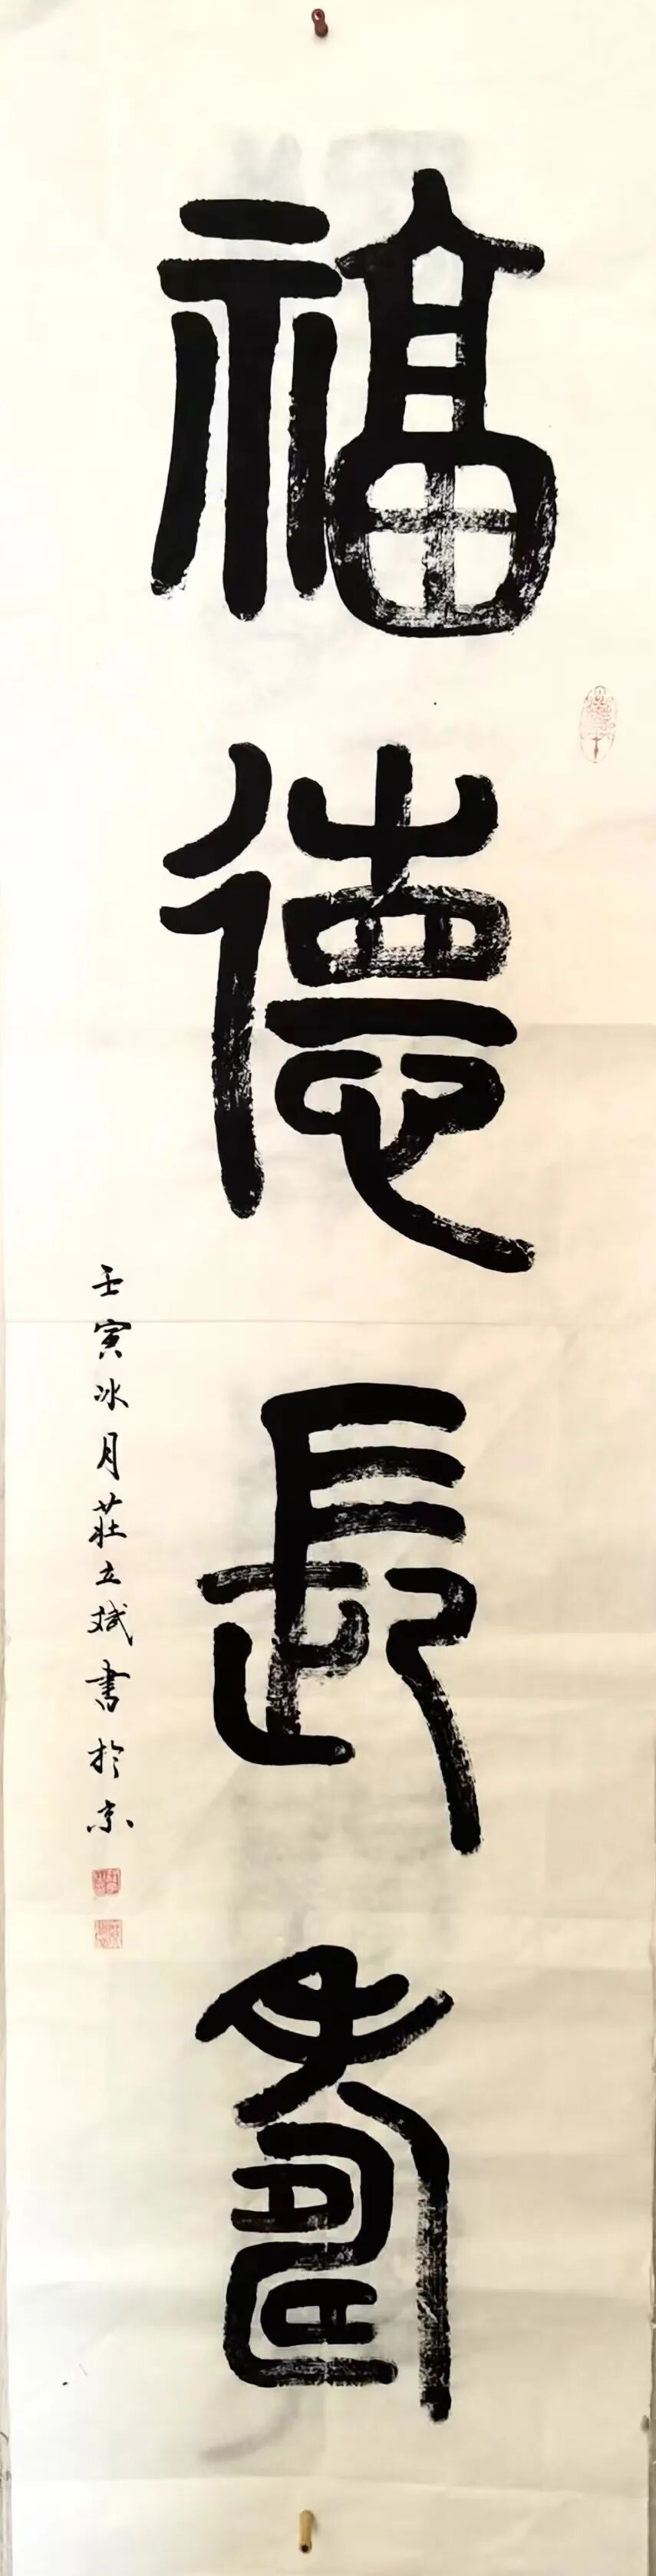 福德長壽
壬寅冰月莊立斌書於京